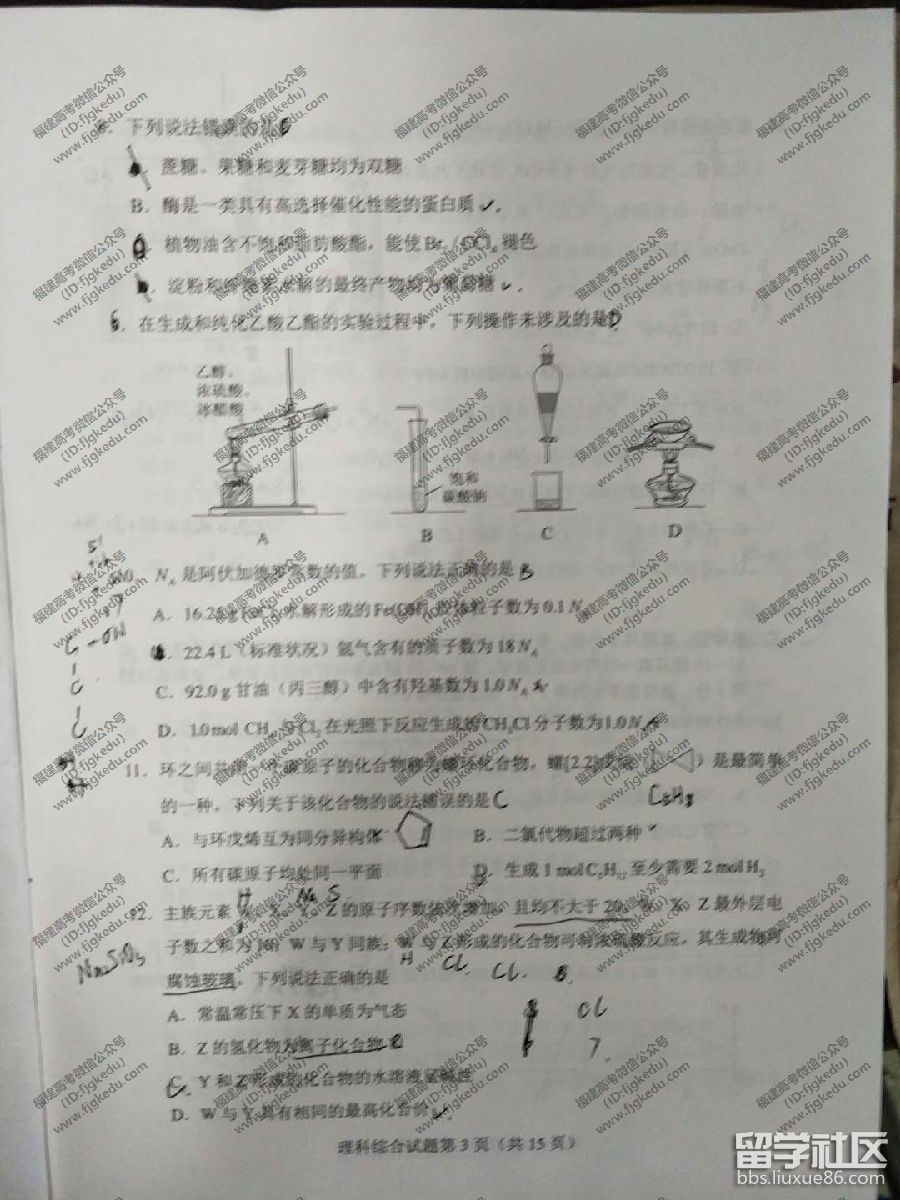 下列说法错误的是
蔗糖、果糖和麦芽糖均为双糖
B．酶是一类具有高选择催化性能的蛋白质
植物油含不饱和脂肪酸酯，能使Br₂/CCl₄褪色
淀粉和 水解的最终产物均为葡萄糖
在生成和纯化乙酸乙酯的实验过程中，下列操作未涉及的是D
乙醇、
浓硫酸、
冰醋酸
饱和
碳酸钠
A B C D
N_A 是阿伏加德罗常数的值。下列说法正确的是 B
A．16.25 g FeCl₃ 水解形成的 Fe(OH)₃ 胶体粒子数为 0.1 N_A
22.4 L（标准状况）氩气含有的质子数为 18 N_A
C．92.0 g 甘油（丙三醇）中含有羟基数为 1.0 N_A
D．1.0 mol CH₄ 与 Cl₂ 在光照下反应生成的 CH₃Cl 分子数为 1.0 N_A
11．环之间共用一个碳原子的化合物称为螺环化合物，螺[2.2]戊烷（ ）是最简单
的一种。下列关于该化合物的说法错误的是 C
C₅H₈
A．与环戊烯互为同分异构体
B．二氯代物超过两种
C．所有碳原子均处同一平面
D．生成 1 mol C₅H₁₂ 至少需要 2 mol H₂
H Na S
12．主族元素 W、X、Y、Z 的原子序数依次增加，且均不大于 20。W、X、Z 最外层电
子数之和为 10；W 与 Y 同族；W 与 Z 形成的化合物可与浓硫酸反应，其生成物可
Na₂SiO₃
H Cl Cl
腐蚀玻璃。下列说法正确的是
A．常温常压下 X 的单质为气态
Cl
B．Z 的氢化物为离子化合物
7
C．Y 和 Z 形成的化合物的水溶液呈碱性
D．W 与 Y 具有相同的最高化合价
理科综合试题第 3 页（共 15 页）
福建高考微信公众号
(ID:fjgkedu)
www.fjgkedu.com
留学社区
bbs.liuxue86.com